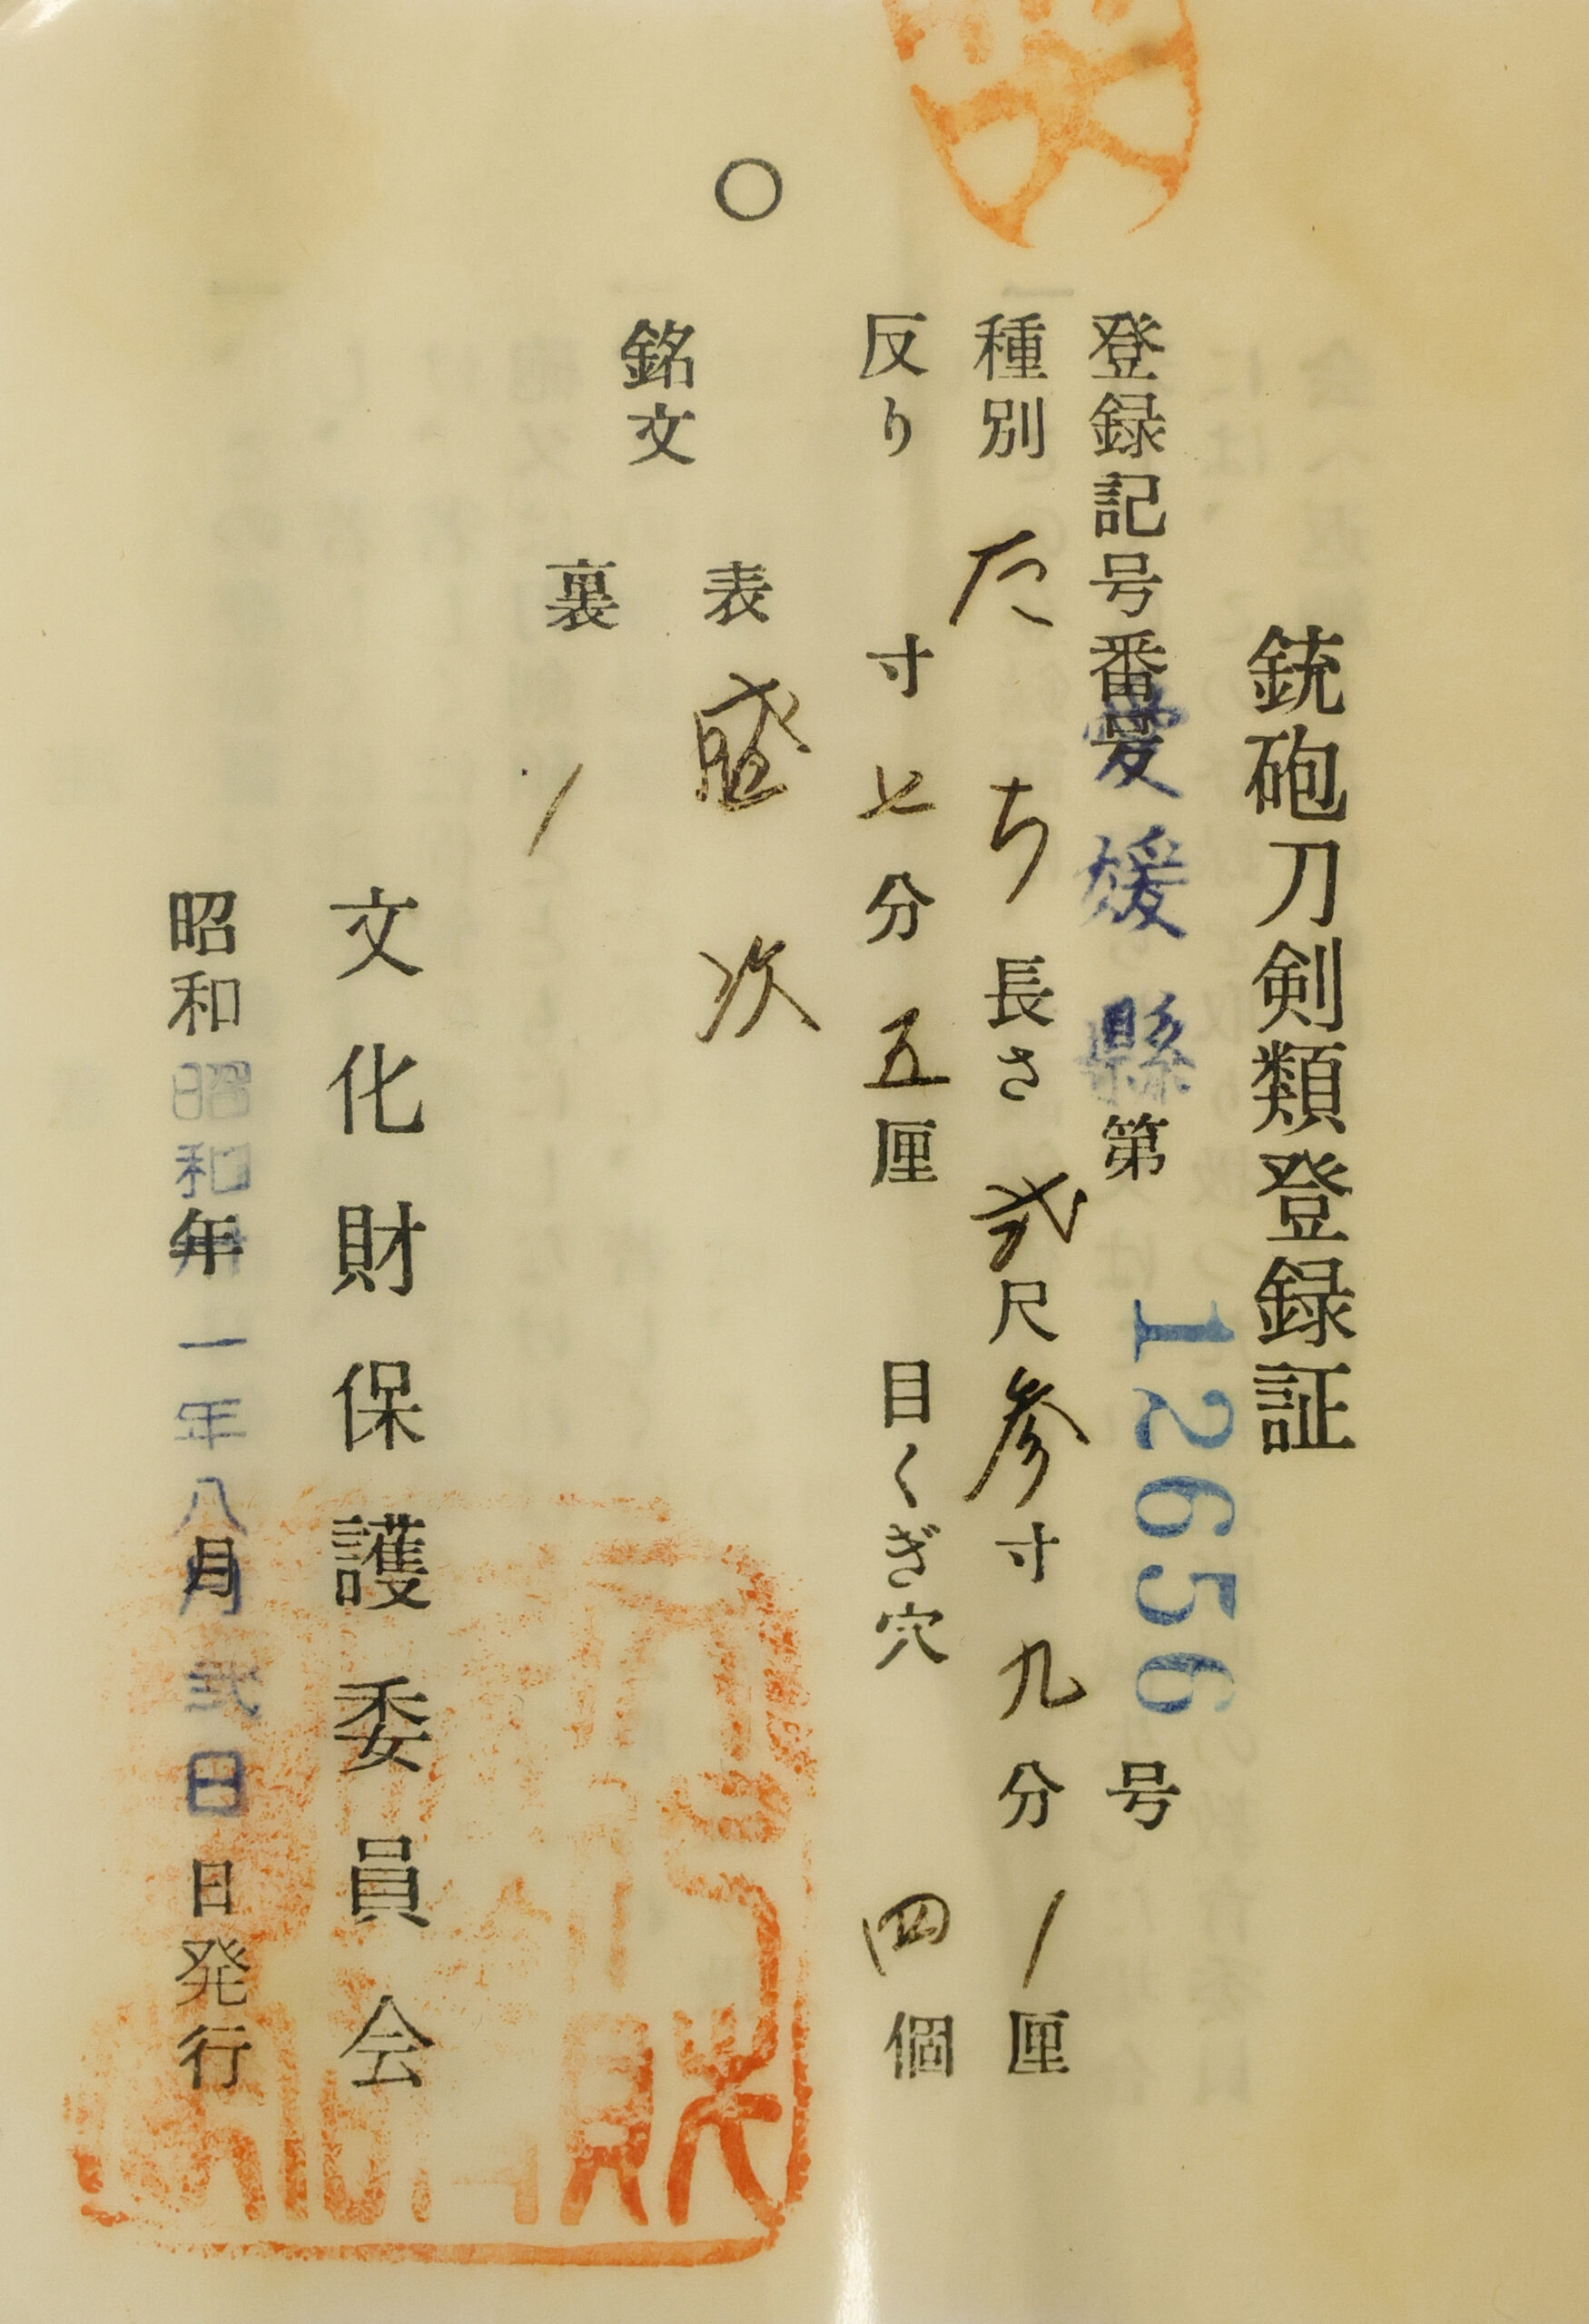 銃砲刀剣類登録証
登録記号番号 愛媛縣 第 12656 号
種別 たち 長さ 弐尺参寸九分/厘
反り 寸七分五厘 目くぎ穴 四個
○
銘文
表 盛次
裏 /
文化財保護委員会
昭和 昭和卅一年 年 八月 月 弐日 日発行